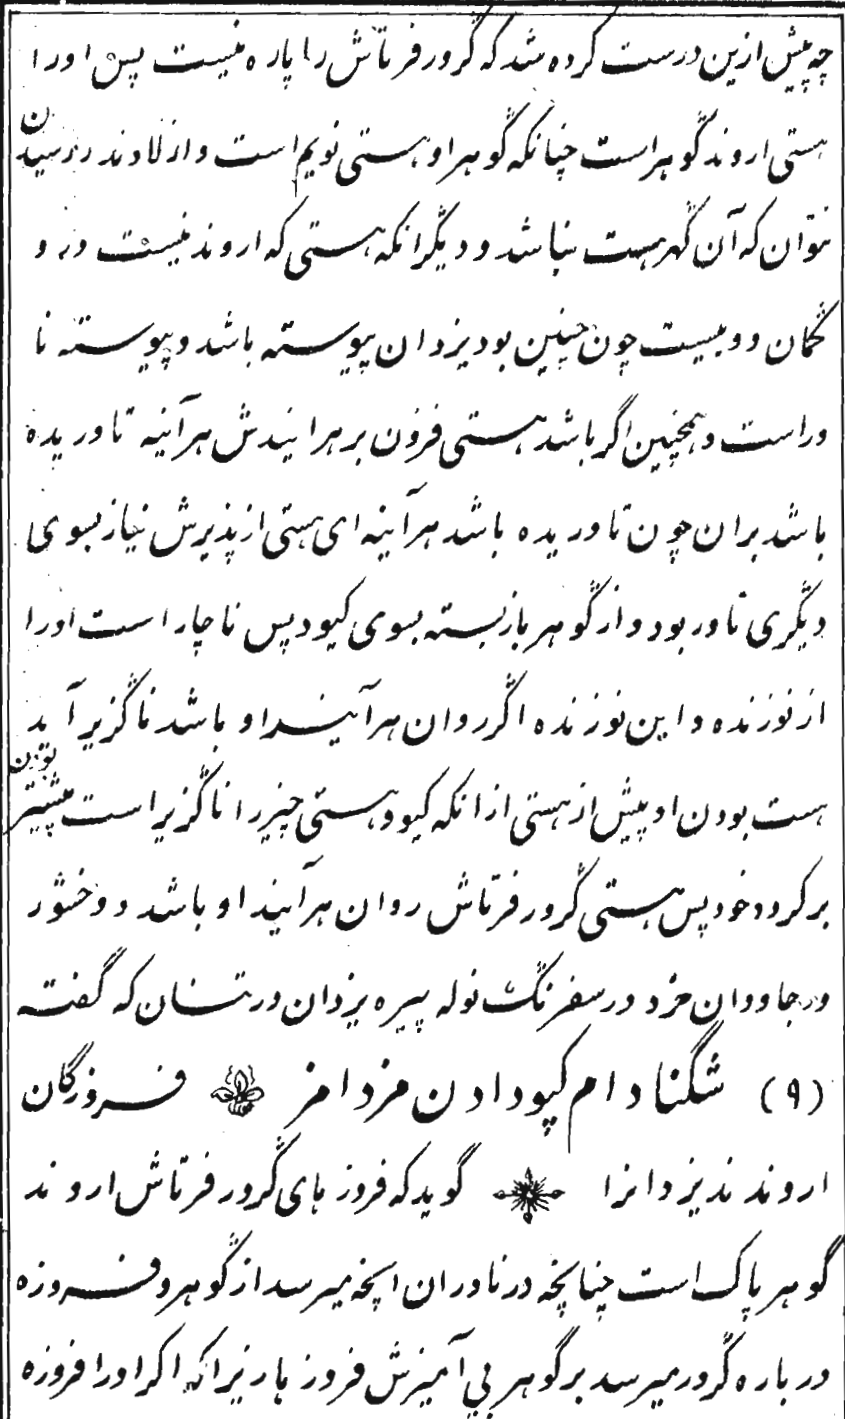 چه پیش ازین درست کرده شد که گرور فرتاش را پاره نیست پس او را
هستی اروند گوهر است چنانکه گوهر او هستی نویم است و از لاد ند رسیدن
نتوان که آن گهر هست نباشد و دیگر انکه هستی که اروند نیست در و
گمان دویست چون چنین بود یزدان پیوسته باشد و پیوسته نا
ور است و همچنین اگر باشد هستی فزون بر هر ایندش هر آینه تاوریده
باشد بران چون تاوریده باشد هر آینه ای هستی از پذیرش نیاز بسوی
دیگری تاور بود و از گوهر باز بسته بسوی کیود پس ناچار است او را
از نوزنده و این نوزنده اگر روان هر آیند او باشد ناگزیر آید
هست بودن او پیش از هستی ازانکه کیود هستی چیز را ناگزیر است پیشتر بودن
بر کرود خود پس هستی گرور فرتاش روان هر آیند او باشد و وخشور
ور جاودان خرد در سفرنگ نوله پیره یزدان ورتستان که گفته
(۹) شگنا دام کپود ادن مزدامز فروزگان
اروند ندیزدانرا گوید که فروزهای گرور فرتاش اروند
گوهر پاک است چنانچه در ناوران انچه میرسد از گوهر و فروزه
در باره گرور میرسد بر گوهر بی آمیزش فروزها زیرا که اگر او را فروزه